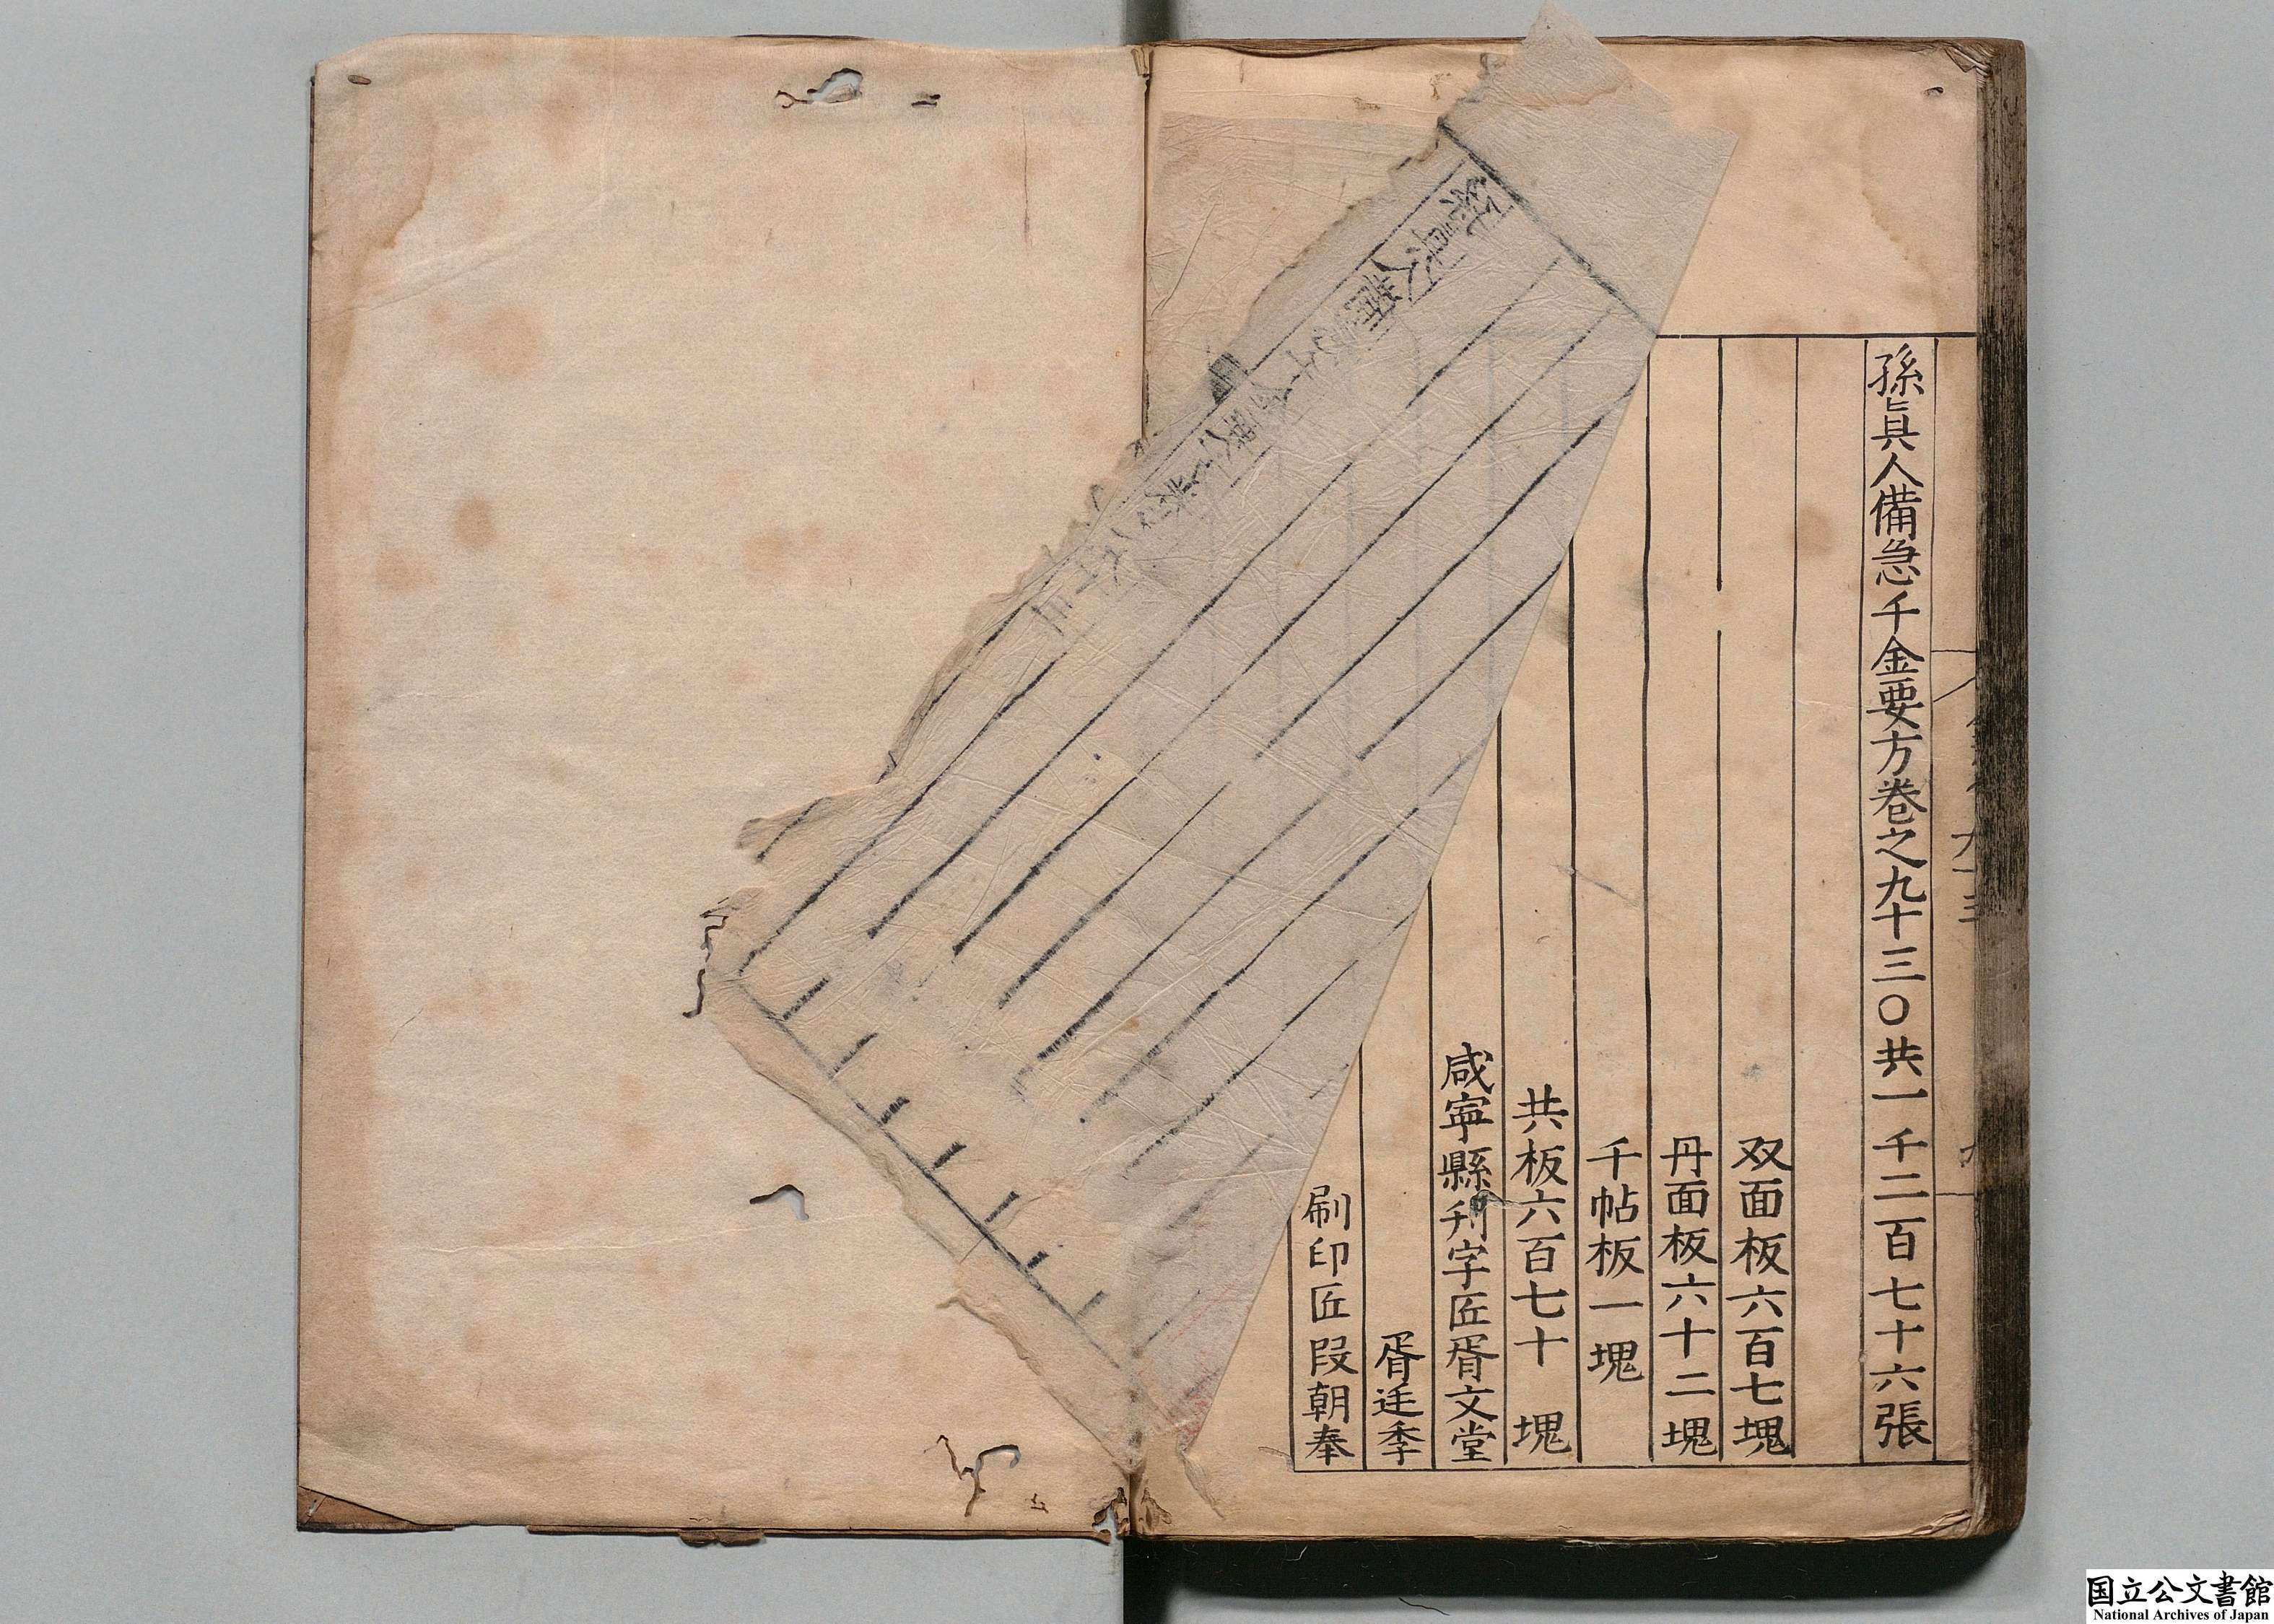 孫眞人備急千金要方卷之九十三〇共一千二百七十六張
双面板六百七塊
丹面板六十二塊
千帖板一塊
共板六百七十塊
咸寜縣刋字匠胥文堂
胥廷季
刷印匠段朝奉
国立公文書館
National Archives of Japan